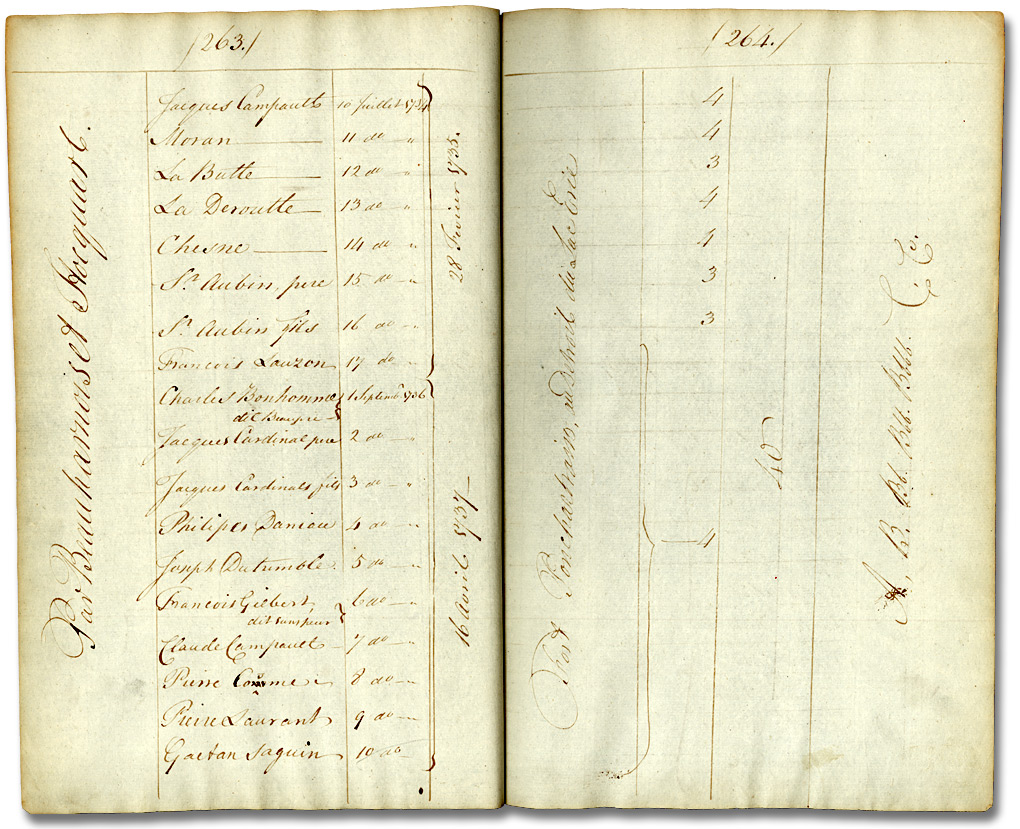 /263./
Par Beauharnois et Hocquart.
Jacques Campault 10 Juillet 1734
Moran 11 do "
La Butte 12 do "
La Deroutte 13 do "
Chesne 14 do "
St. Aubin, pere 15 do "
St. Aubin fils 16 do "
Francois Lauzon 17 do "
28 Fevrier 1735.
Charles Bonhomme 1 Septembre 1736
dit Beaupré
Jacques Cardinal pere 2 do "
Jacques Cardinals fils 3 do "
Philipes Daniau 4 do "
Joseph Dutrumble 5 do "
Francois Gilbert 6 do "
dit sanspeur
Claude Campault 7 do "
Pierre 8 do "
Pierre Laurant 9 do "
Gaetan Saguin 10 do
16 Avril 1737
/264./
Fort Ponchartrain, au Detroit du Lac Erié
4
4
3
4
4
3
3
4
40
A, B. Bb. Bbb. Bbbb. &, &c.